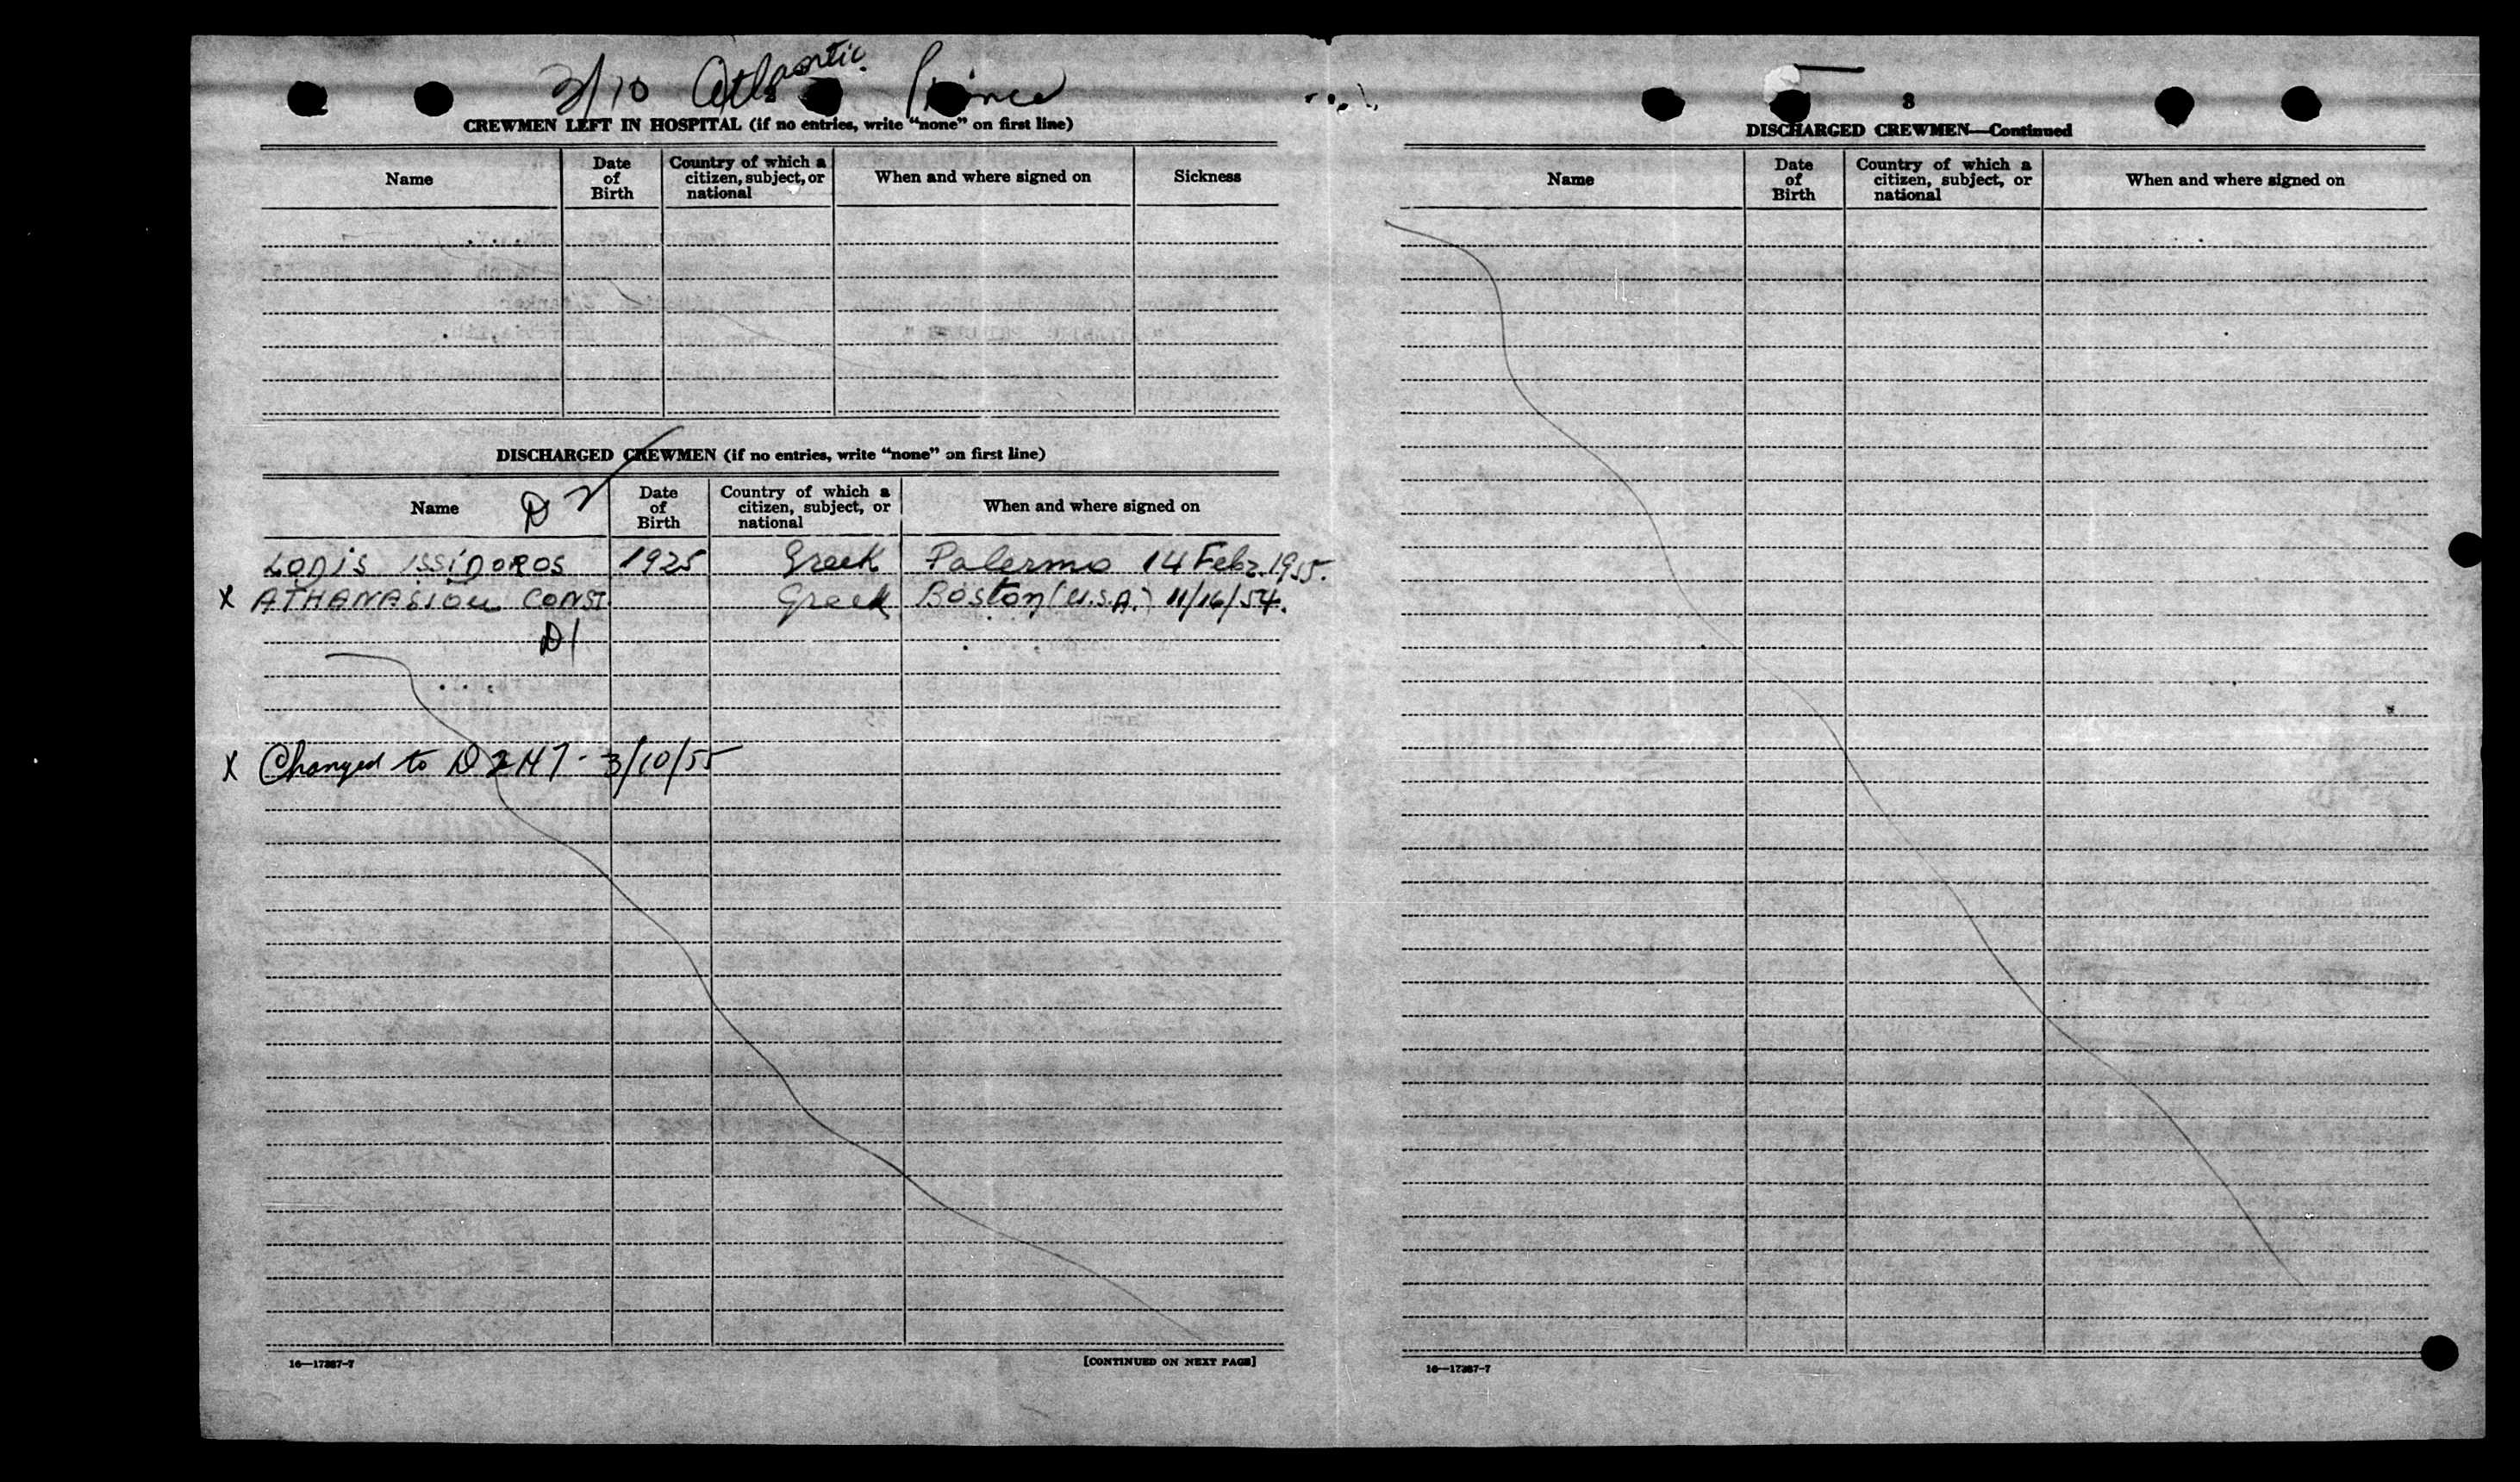 3/10 Atlantic Prince
CREWMEN LEFT IN HOSPITAL (if no entries, write "none" on first line)
Name
Date of Birth
Country of which a citizen, subject, or national
When and where signed on
Sickness
DISCHARGED CREWMEN (if no entries, write "none" on first line)
Name D 2
Date of Birth
Country of which a citizen, subject, or national
When and where signed on
LODIS ISSIDOROS 1925 Greek Palermo 14 Febr. 1955.
X ATHANASIOU CONST. Greek Boston (U.S.A.) 11/16/54.
D1
X Changed to D 2 H7 - 3/10/55
16—17387-7
[CONTINUED ON NEXT PAGE]
3
DISCHARGED CREWMEN—Continued
Name
Date of Birth
Country of which a citizen, subject, or national
When and where signed on
16—17387-7